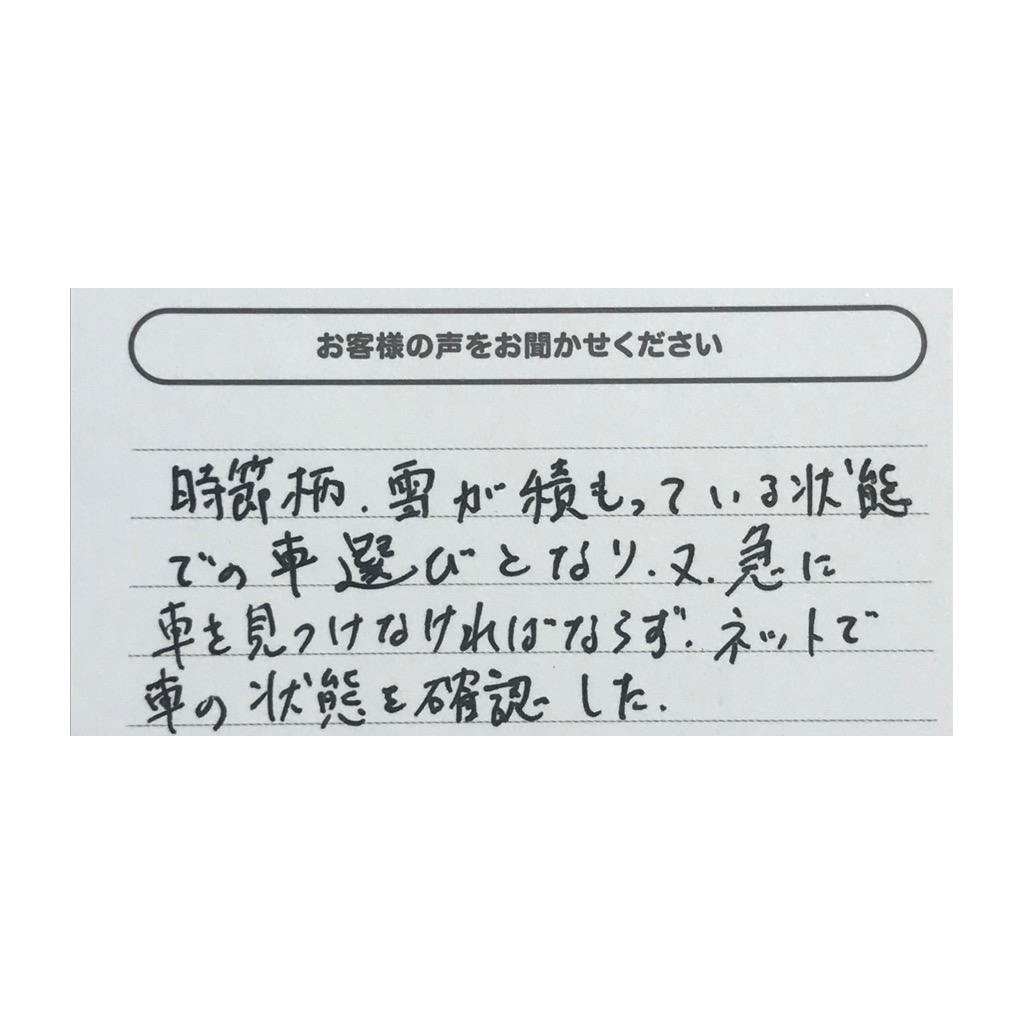 お客様の声をお聞かせください
時節柄、雪が積もっている状態
での車選びとなり、又、急に
車を見つけなければならず、ネットで
車の状態を確認した。